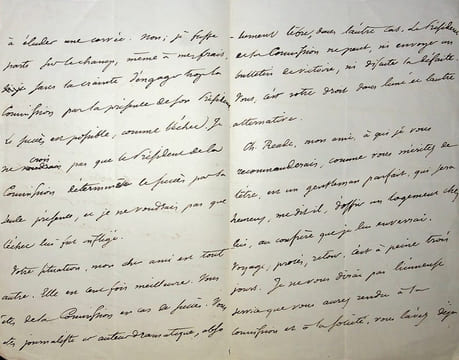 à éluder une corvée. Non; je fusse
parti sur le champ, même à mes frais,
sans la crainte d'engager trop la
Commission par la présence de son Président.
Le succès est possible, comme l'échec. Je
ne crois pas que le Président de la
Commission détermine le succès par sa
seule présence, et je ne voudrais pas que
l'échec lui fut infligé.
Votre situation, mon cher ami est tout
autre. Elle est cent fois meilleure. Vous
êtes de la Commission en cas de succès. Vous
êtes journaliste et auteur dramatique,
-lument libre, dans l'autre cas. Le Président
et la Commission ne peut, ni envoyer un
bulletin de victoire, ni discuter la défaite.
Vous, c'est votre droit dans l'une et l'autre
alternative.
Ch. Reade, mon ami, à qui je vous
recommanderais, comme vous méritez de
l'être, est un gentleman parfait, qui sera
heureux, me dit-il, d'offrir un logement chez
lui, au confrère que je lui enverrai.
Voyage, procès, retour, c'est à peine trois
jours. Je ne vous dirai pas l'immense
service que vous aurez rendu à la
Commission et à la société, vous l'avez déjà